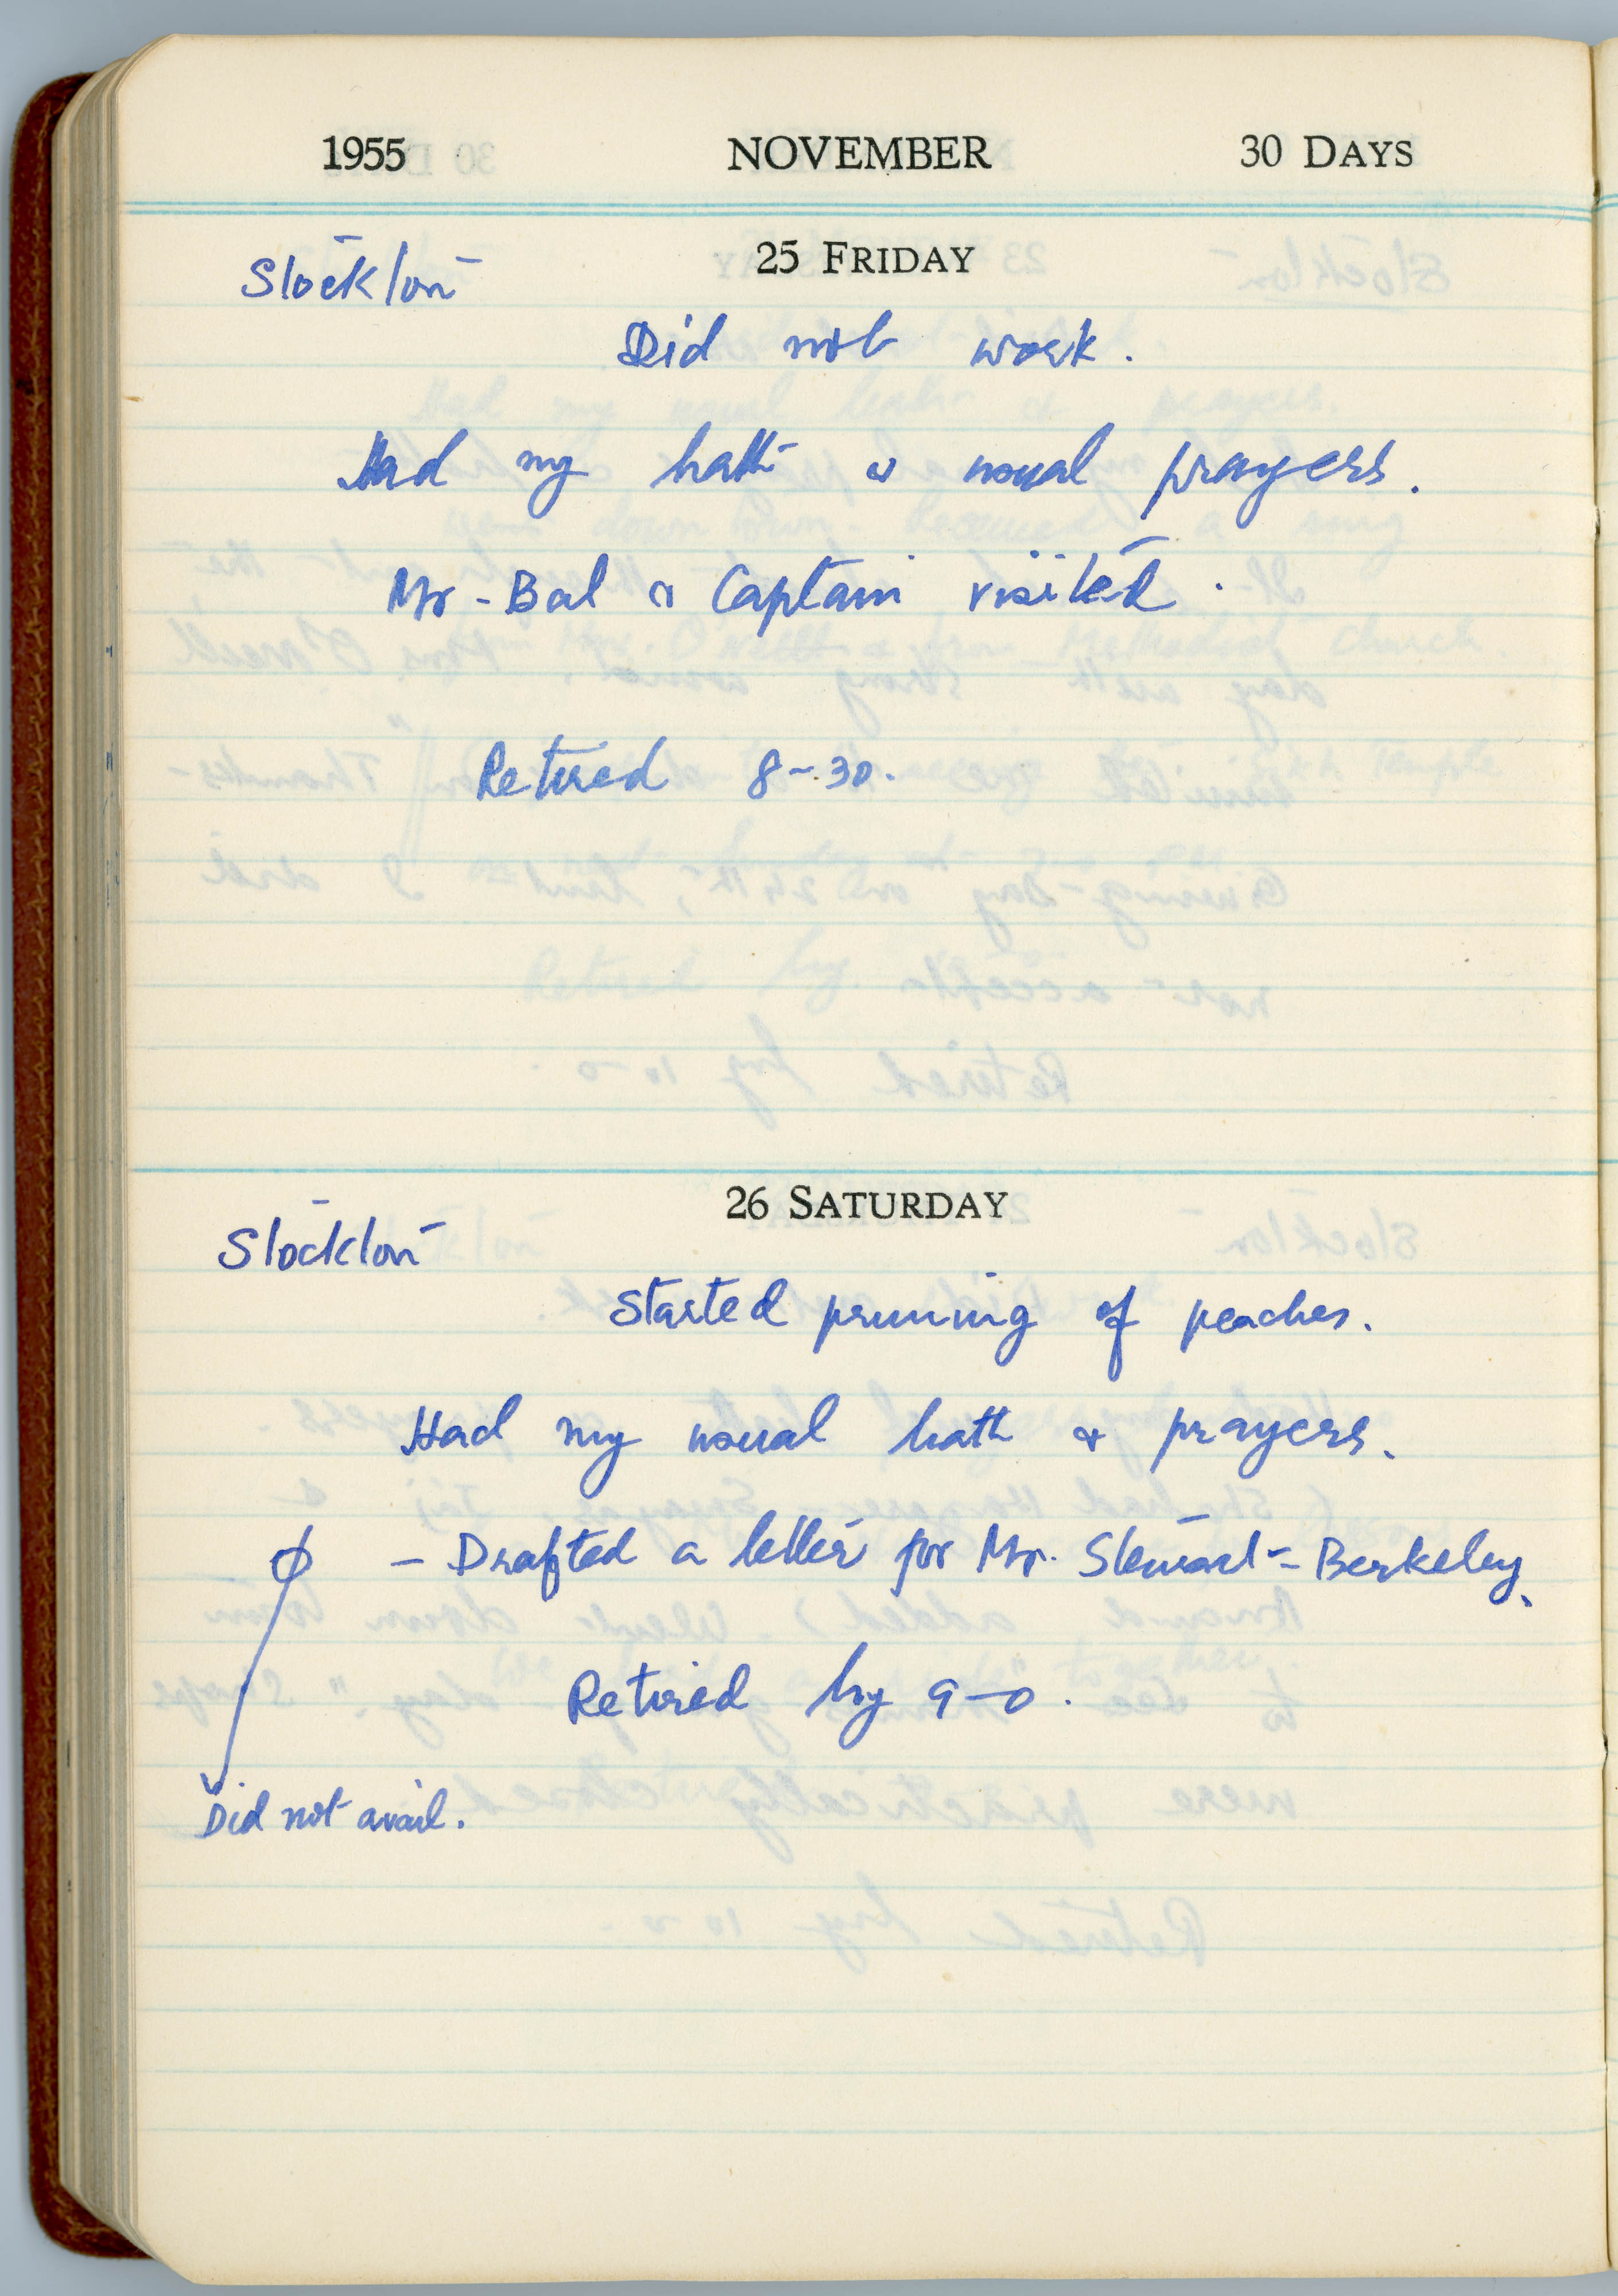 1955 NOVEMBER 30 DAYS
25 FRIDAY
Stockton
Did not work.
Had my bath & usual prayers.
Mr. Bal & Captain visited.
Retired 8-30.
26 SATURDAY
Stockton
Started pruning of peaches.
Had my usual bath & prayers.
- Drafted a letter for Mr. Stewart - Berkeley.
Retired by 9-0.
Did not avail.